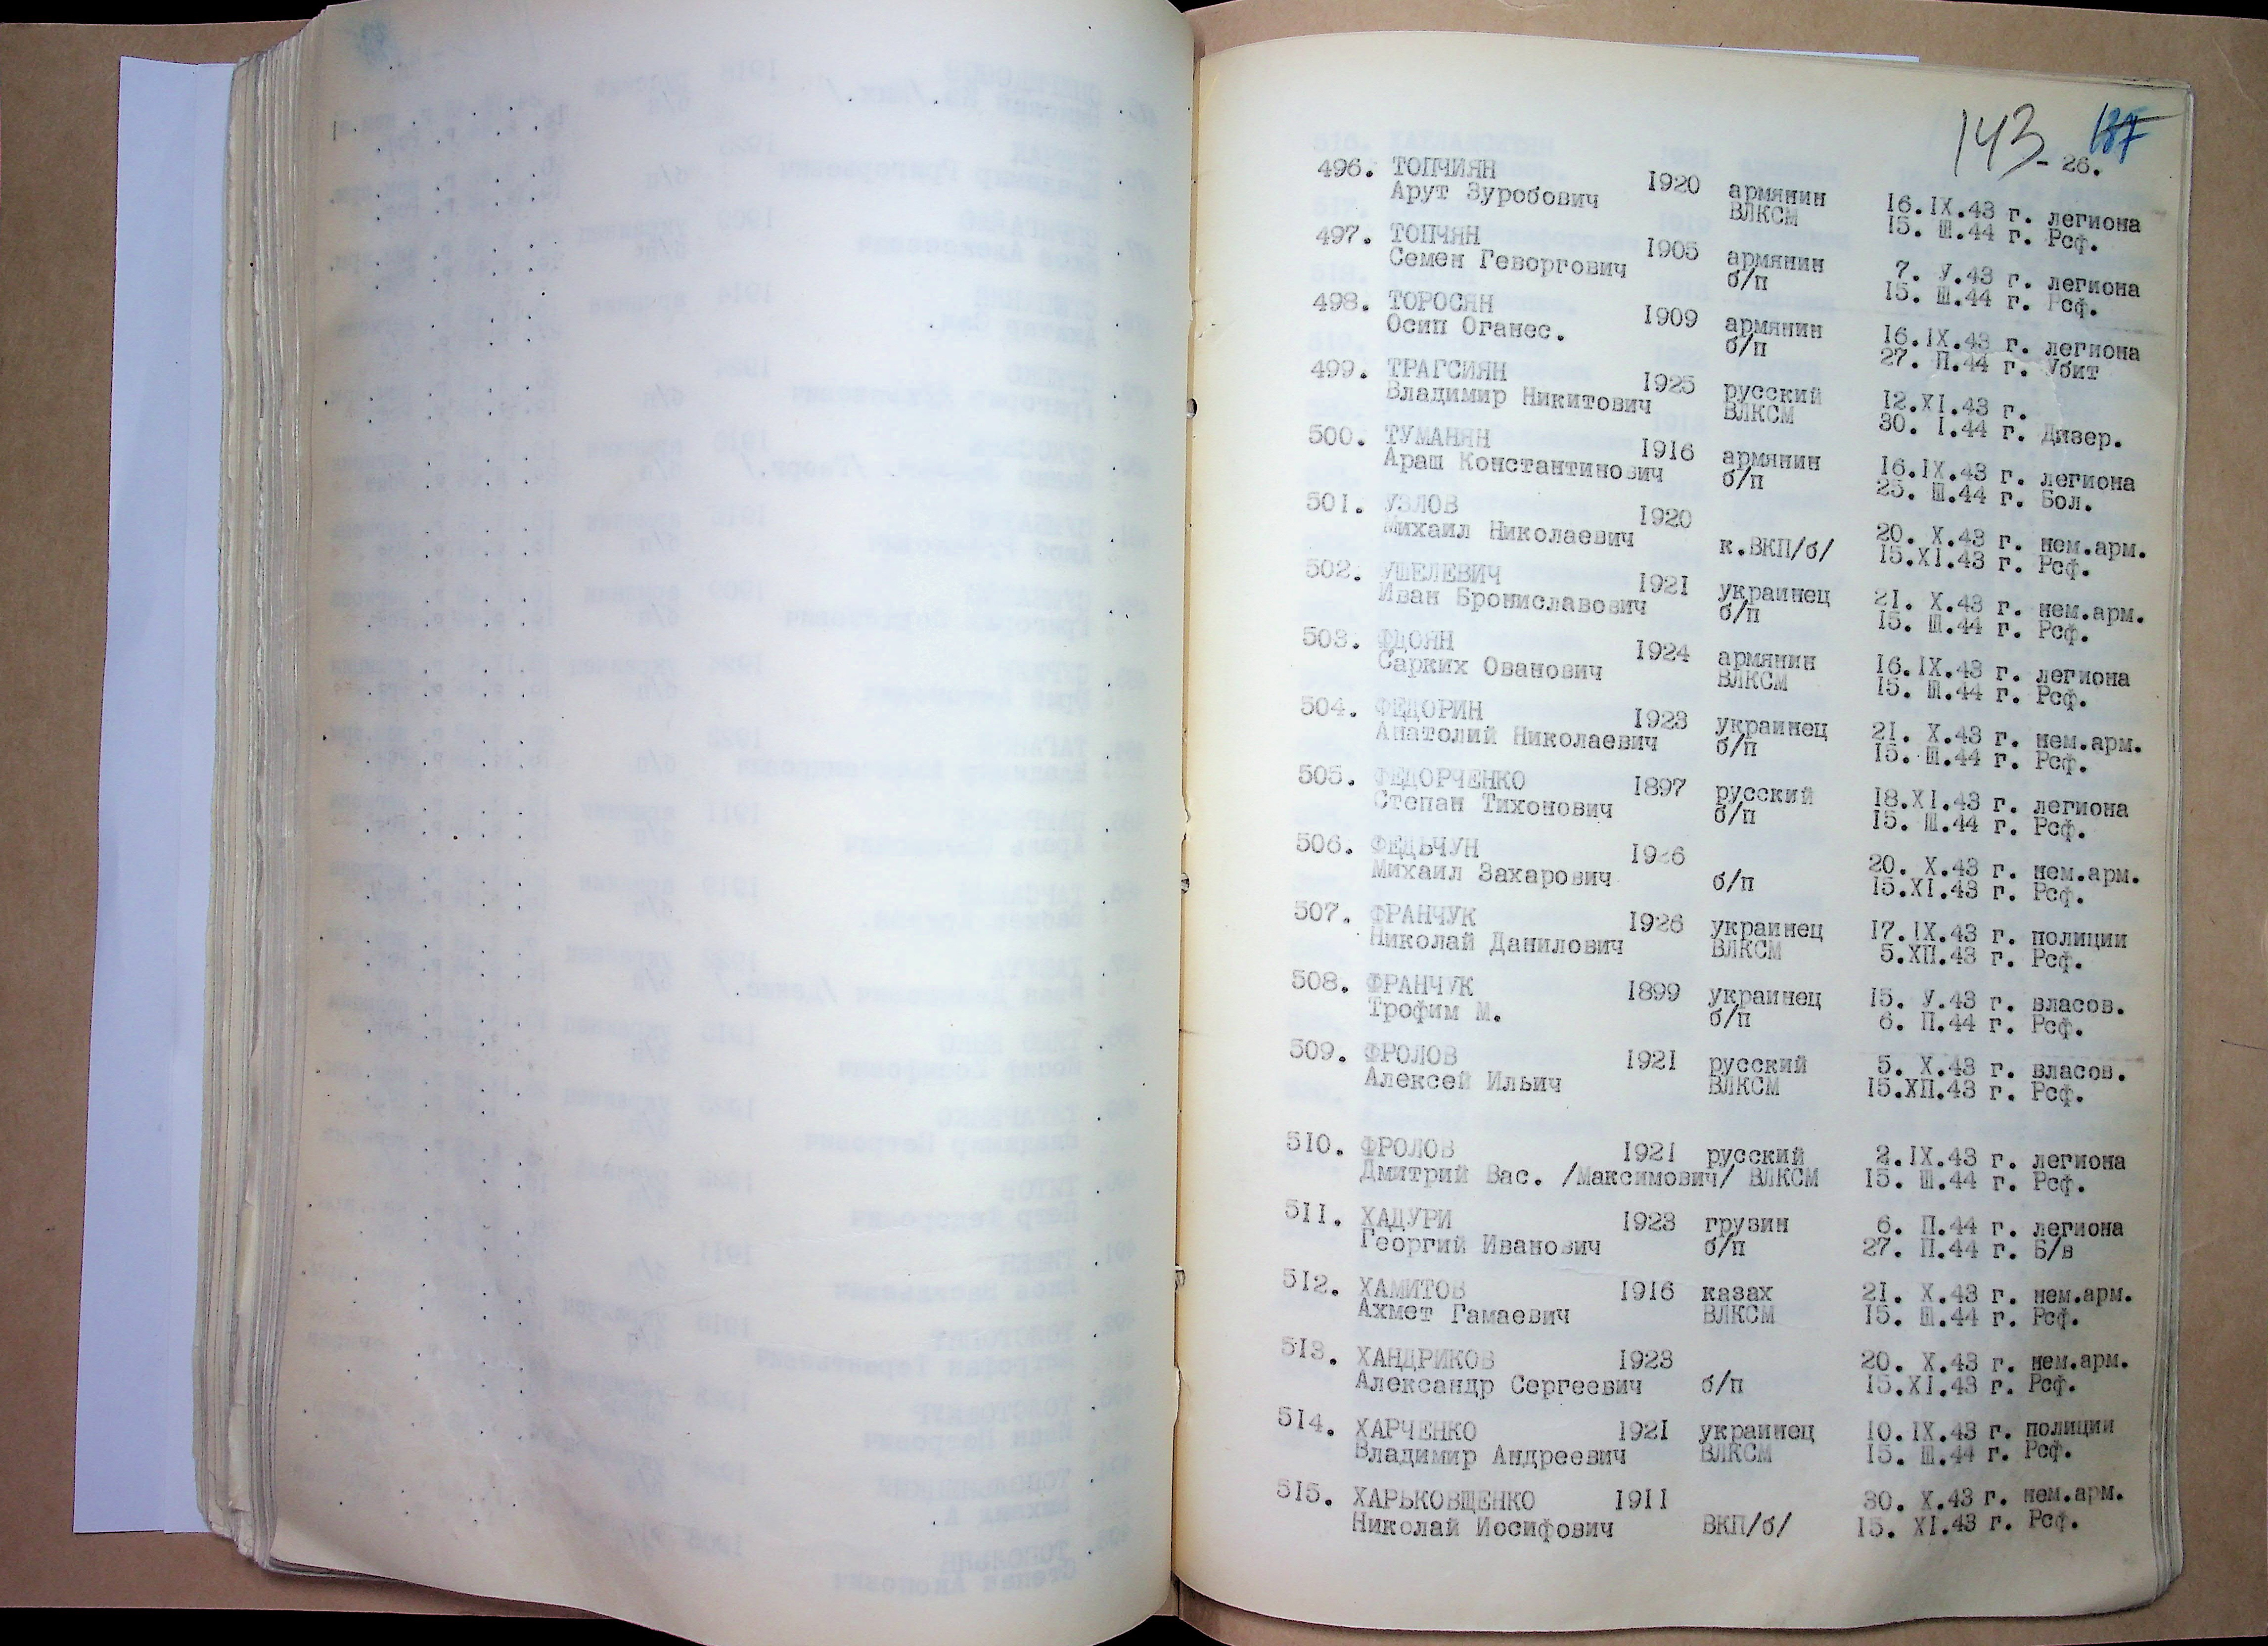 143
- 26.
496. ТОПЧИЯН 1920 армянин 16.IX.43 г. легиона
Арут Зуробович ВЛКСМ 15. Ш.44 г. Рсф.
497. ТОПЧЯН 1905 армянин 7. У.43 г. легиона
Семен Геворгович б/п 15. Ш.44 г. Рсф.
498. ТОРОСЯН 1909 армянин 16.IX.43 г. легиона
Осип Оганес. б/п 27. П.44 г. Убит
499. ТРАГСИЯН 1925 русский 12.XI.43 г.
Владимир Никитович ВЛКСМ 30. I.44 г. Дизер.
500. ТУМАНЯН 1916 армянин 16.IX.43 г. легиона
Араш Константинович б/п 25. Ш.44 г. Бол.
501. УЗЛОВ 1920 20. X.43 г. нем.арм.
Михаил Николаевич к.ВКП/б/ 15.XI.43 г. Рсф.
502. УШЕЛЕВИЧ 1921 украинец 21. X.43 г. нем.арм.
Иван Брониславович б/п 15. Ш.44 г. Рсф.
503. ФДОЯН 1924 армянин 16.IX.43 г. легиона
Сарких Ованович ВЛКСМ 15. Ш.44 г. Рсф.
504. ФЕДОРИН 1923 украинец 21. X.43 г. нем.арм.
Анатолий Николаевич б/п 15. Ш.44 г. Рсф.
505. ФЕДОРЧЕНКО 1897 русский 18.XI.43 г. легиона
Степан Тихонович б/п 15. Ш.44 г. Рсф.
506. ФЕДЬЧУН 20. X.43 г. нем.арм.
Михаил Захарович б/п 15.XI.43 г. Рсф.
507. ФРАНЧУК 1926 украинец 17.IX.43 г. полиции
Николай Данилович ВЛКСМ 5.XП.43 г. Рсф.
508. ФРАНЧУК 1899 украинец 15. У.43 г. власов.
Трофим М. б/п 6. П.44 г. Рсф.
509. ФРОЛОВ 1921 русский 5. X.43 г. власов.
Алексей Ильич ВЛКСМ 15.XП.43 г. Рсф.
510. ФРОЛОВ 1921 русский 2.IX.43 г. легиона
Дмитрий Вас. /Максимович/ ВЛКСМ 15. Ш.44 г. Рсф.
511. ХАДУРИ 1923 грузин 6. П.44 г. легиона
Георгий Иванович б/п 27. П.44 г. Б/в
512. ХАМИТОВ 1916 казах 21. X.43 г. нем.арм.
Ахмет Гамаевич ВЛКСМ 15. Ш.44 г. Рсф.
513. ХАНДРИКОВ 1923 20. X.43 г. нем.арм.
Александр Сергеевич б/п 15.XI.43 г. Рсф.
514. ХАРЧЕНКО 1921 украинец 10.IX.43 г. полиции
Владимир Андреевич ВЛКСМ 15. Ш.44 г. Рсф.
515. ХАРЬКОВЩЕНКО 1911 30. X.43 г. нем.арм.
Николай Иосифович ВКП/б/ 15. XI.43 г. Рсф.